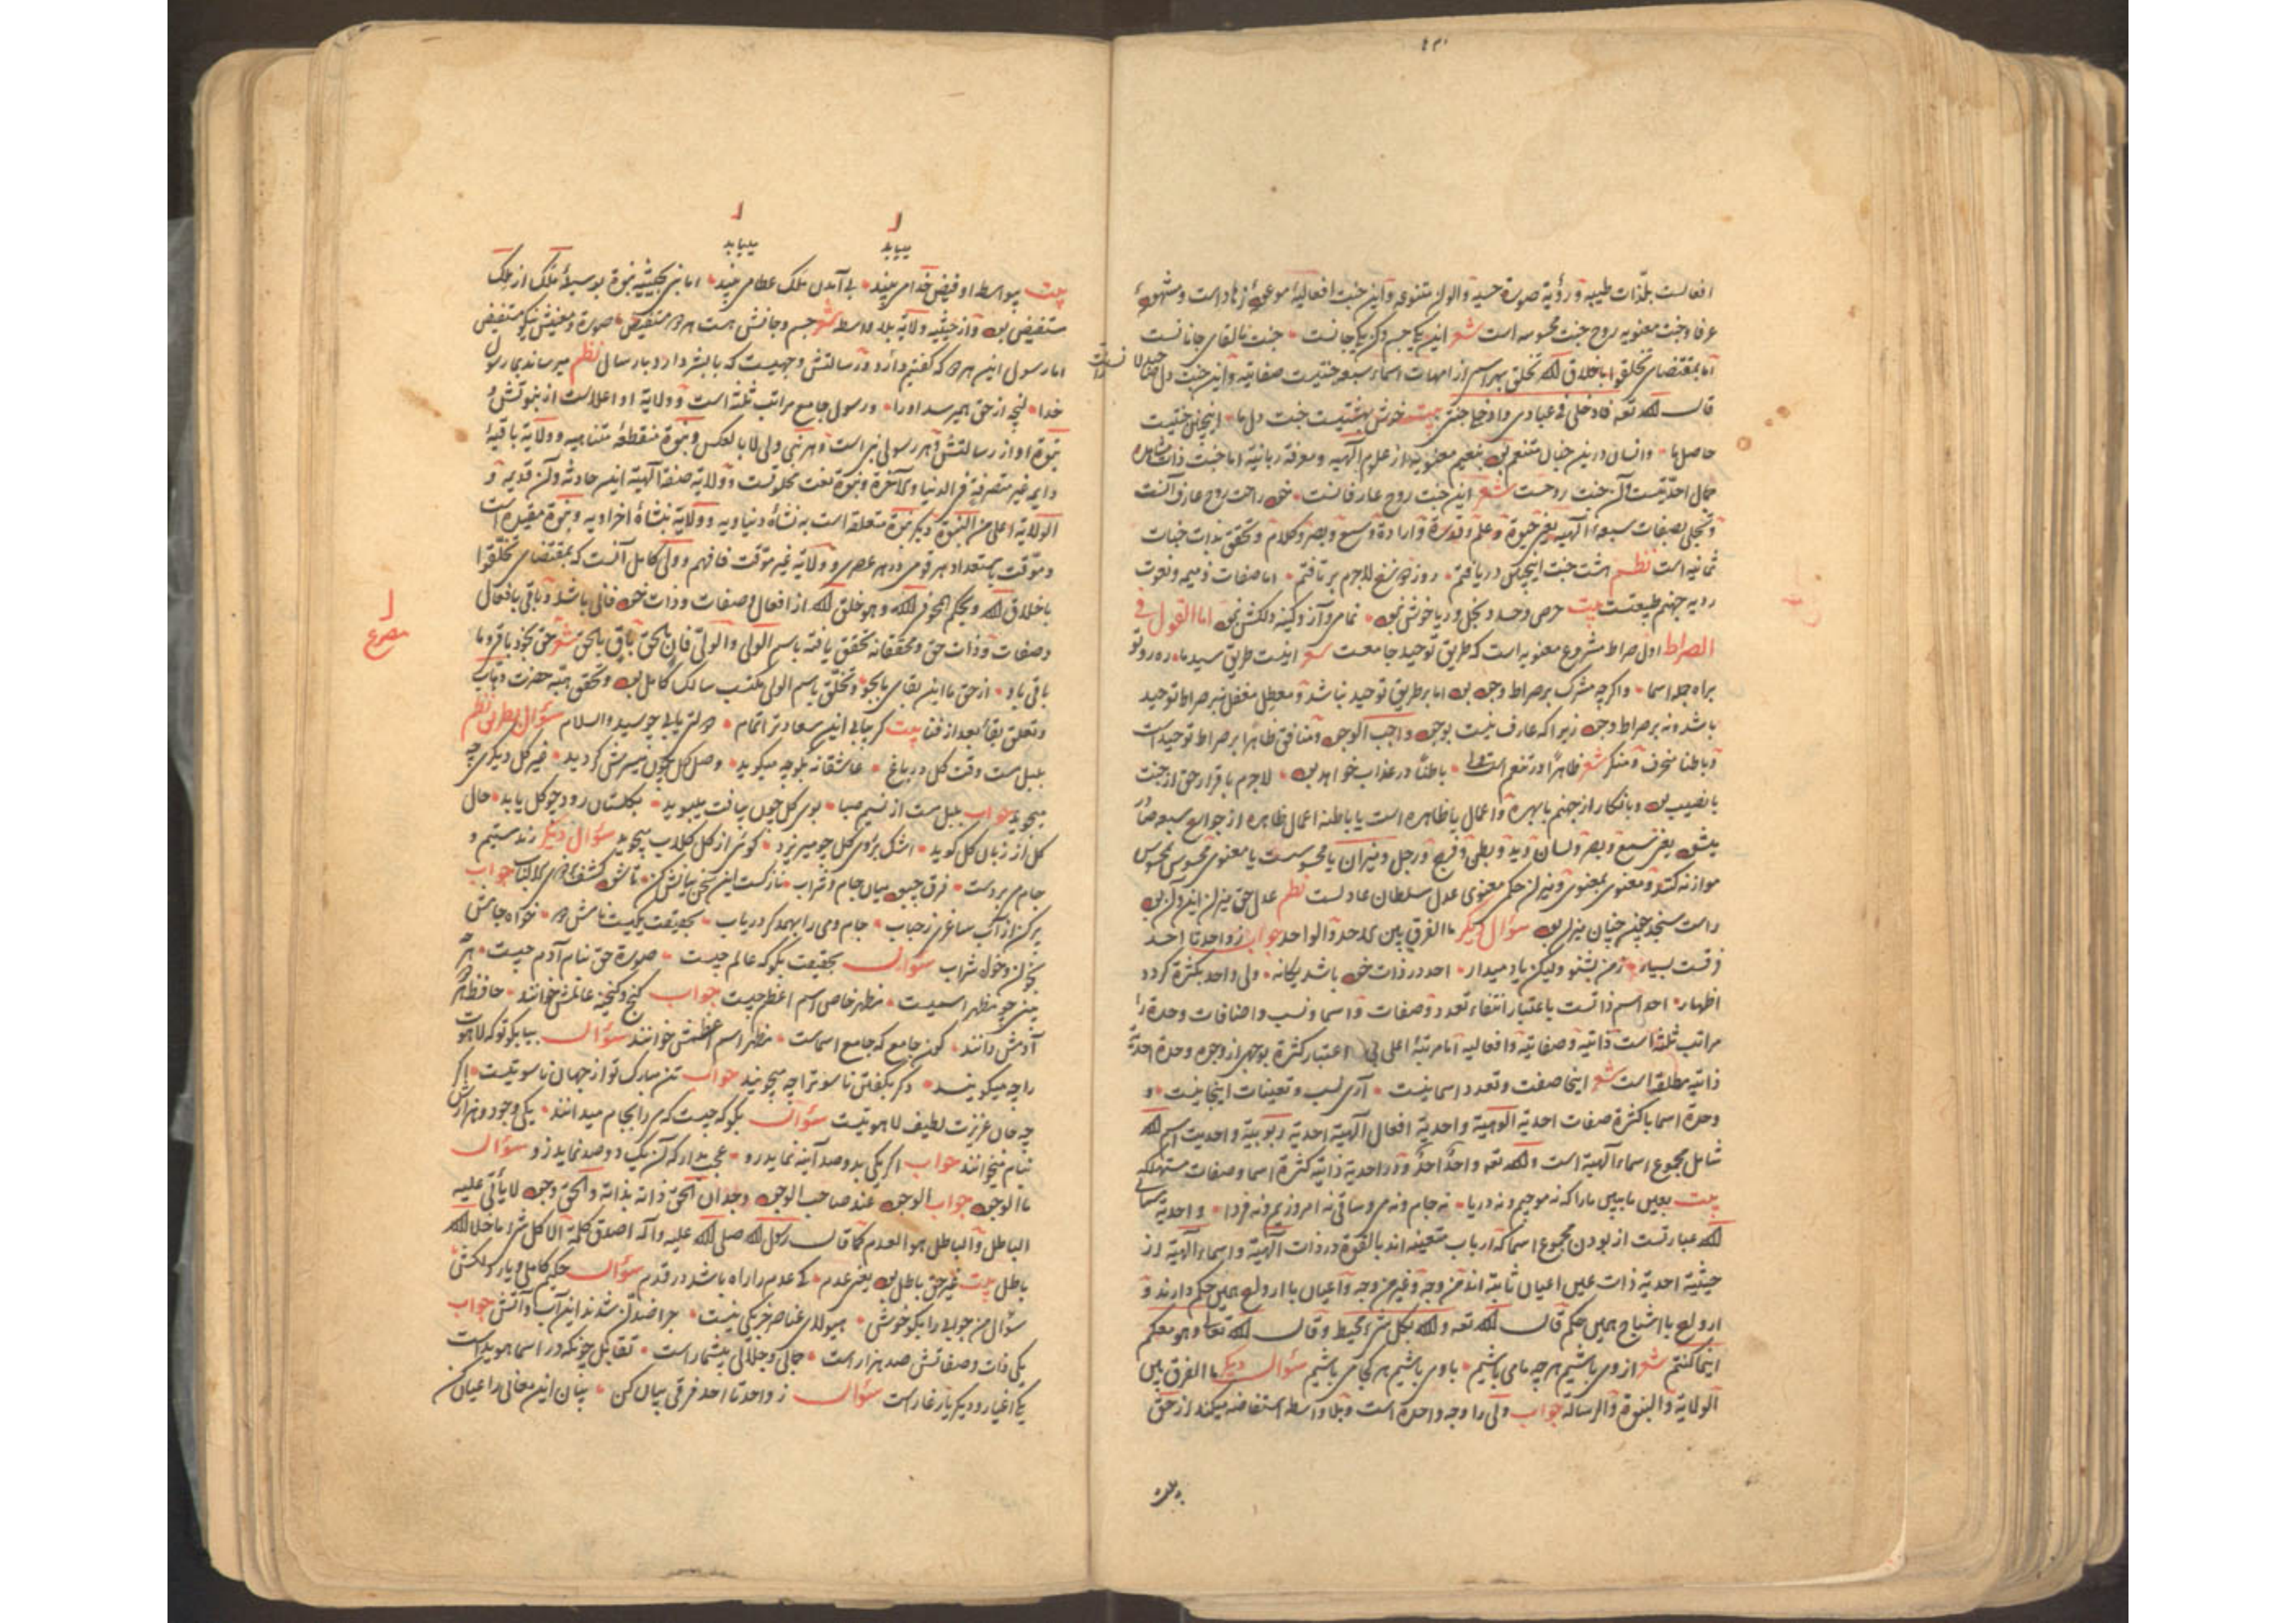 افعالست بلذات طیبه و رؤیة صورة حسیه والوان متنوعه و این جنت افعالیه موعود زهاد است و مشتهی
عرفا و جنت معنویه روح جنت محسوسه است شعر این یکی جسم و آن یکی جانست جنت ما لقای جانانست
اما بمقتضای تخلقوا باخلاق الله تخلق بهر اسم از امهات اسماء سبعه جنتیست صفاتیه و این جنت دل
قال الله تعه فادخلی فی عبادی وادخلی جنتی بیت خوش بهشتیست جنت دل ما اینچنین جنتیست
حاصل ما وانسان درین جنان متنعم بود بنعیم معنویه از علوم الهیه و معرفة ربانیه اما جنت ذات مشاهده
جمال احدیتست و آن جنت روحست شعر این جنت روح عارفانست خود راحت روح عارف آنست
و تجلی بصفات سبعه الهیه یعنی حیوة و علم و قدرة و ارادة و سمع و بصر و کلام و تحقق بذات جنات
ثمانیه است نظم هشت جنت اینچنین دریافتم روز دوزخ لاجرم برتافتم اما صفات ذمیمه و نعوت
ردیه جهنم طبیعتست بیت حرص و حسد و بخل و ریا خوش نبود نمامی و آز و کینه دلکش نبود اما القول فی
الصراط اول صراط مشروع معنویه است که طریق توحید جامعست شعر اینست طریق سید ما ره رو تو
براه جمله اسما و اگرچه مشرک بر صراط وجود بود اما بر طریق توحید نباشد و معطل مغفل نه بر صراط توحید
باشد و نه بر صراط وجود زیرا که عارف نیست بوجود واجب الوجود و منافق ظاهرا بر صراط توحید است
و باطنا منحرف و منکر شعر ظاهرا در تنعم است ولی باطنا در عذاب خواهد بود لاجرم باقرار حق از جنت
با نصیب بود و بانکار از جهنم با بهره و اعمال یا ظاهره است یا باطنه اعمال ظاهره از جوارح سبعه صادر
میشود یعنی سمع و بصر و لسان و ید و بطن و فرج و رجل و میزان یا محسوسست یا معنوی محسوس بمحسوس
موازنه کنند و معنوی بمعنوی و میزان حکم معنوی عدل سلطان عادلست نظم عدل حق میزان این و آن بود
راست سنجد چونچنان میزان بود سؤال دیگر ما الفرق بین الاحد والواحد جواب ز واحد تا احد
فرقست بسیار ز من بشنو ولیکن یاد میدار احد در ذات خود باشد یکانه ولی واحد بکثرة کردد
اظهار احد اسم ذاتست باعتبار انتفاء تعدد صفات و اسما و نسب و اضافات و وحدة را
مراتب ثلثه است ذاتیه و صفاتیه و افعالیه اما مرتبهٔ اعلی بی اعتبار کثرة بوجهی از وجوه وحدة احدیة
ذاتیه مطلقه است شعر اینجا صفت و تعدد اسما نیست آری نسب و تعینات اینجا نیست و
وحدة اسما با کثرة صفات احدیة الوهیة و احدیة افعال الهیه احدیة ربوبیة و احدیت اسم الله
شامل مجموع اسماء الهیة است والله تعه واحد احد و در احدیة ذاتیه کثرة اسما و صفات مستهلکه
بیت بعین ما ببین ما را که نه موجیم و نه دریا نه جام و نه می و ساقی نه امروزیم و نه فردا و احدیة اسمائی
الله عبارتست از بودن مجموع اسما که ارباب متعینه اند بالقوة در ذات الهیة و اسماء الهیة از
حیثیة احدیة ذات عین اعیان ثابته اند من وجه و غیر من وجه و اعیان با ارواح همین حکم دارند و
ارواح با اشباح همین حکم قال الله تعه والله بکل شیء محیط و قال الله تعا وهو معکم
اینما کنتم شعر از وی باشیم هر چه ما می باشیم با وی باشیم هر کجا می باشیم سؤال دیگر ما الفرق بین
الولایة والنبوة والرسالة جواب ولی را وجه واحد است و بلا واسطه استفاضه میکند از حق
ییابد ییابد
بیت بیواسطه او فیض خدا می بیند بی آمدن ملک عطا می بیند اما نبی بحیثیه نبوة بوسیلهٔ ملک از ملک
مستفیض بود و از حیثیه ولایة بلا واسطه شعر جسم و جانش هست هر دو مستفیض صورة و معنیش نیکو مستفیض
اما رسول این هر دو که گفتیم دارد و رسالتش وجهیست که با بشر دارد و بارسال نظم میرساند بما رسول
خدا آنچه از حق همیرسد او را و رسول جامع مراتب ثلثه است و ولایة او اعلاست از نبوتش و
نبوة او از رسالتش و هر رسولی نبی است و هر نبی ولی لا بالعکس و نبوة منقطعه متناهیه و ولایة باقیة
دایمه غیر متصرفیه فی الدنیا والآخرة و نبوة نعت مخلوقست و ولایة صفة الهیة این حادثه و آن قدیمه و
الولایة اعلی من النبوة دیگر نبوة متعلقه است به نشأة دنیاویه و ولایة بنشأة اخراویه و نبوة مقید است
و موقت باستعداد هر قومی در هر عصری و ولایة غیر موقت فافهم و ولی کامل آنست که بمقتضای تخلقوا
باخلاق الله از افعال و صفات و ذات خود فانی باشد و باقی بافعال
و صفات و ذات حق و محققانه تحقق یافته باسم الولی والولی فان بالحق باق بالحق
باقی باو از حق ما این بقای ما بجو و تخلق باسم الولی مکتسب سالک کامل بود و تحقق هبة حضرت وهاب
و تعلق بقا بعد از فنا بیت گر بیابی این سعادت را تمام دولتی یابی چو سید والسلام سؤال بطریق نظم
بلبل مست وقت گل در باغ عاشقانه بگو چه میگوید وصل گل چون میسرش گردید غیر گل دیگری چه
میجوید جواب بلبل مست از نسیم صبا بوی گل چون بیافت میبوید بگلستان رود چو گل یابد حال
گل از زبان گل گوید اشک بر روی گل چو میریزد گوئی از گل گلاب میجوید سؤال دیگر رند مستیم و
جام می بر دست فرق چبود میان جام و شراب نازکست این سخن بیانش کن تا شود کشف بر اولو الالباب جواب
پر کن از آب ساغری ز حباب جام و می را بهمدگر دریاب بحقیقت یکیست نامش دو خواه جامش
بخوان و خواه شراب سؤال بحقیقت بگو که عالم چیست صورة حق بنام آدم چیست هر چه
بینی چو مظهر اسمیست مظهر خاص اسم اعظم چیست جواب گنج و گنجینه عالمش خوانند حافظ هر دو
آدمش دانند کون جامع که جامع اسماست مظهر اسم اعظمش خوانند سؤال بیا بگو تو که لاهوت
را چه میگویند دگر بگفتن ناسوت را چه میجویند جواب تن مبارک تو از جهان ناسوتیست اگر
چه جان عزیزت لطیف لاهوتیست سؤال بگو که چیست که مردانجام میدانند یکی وجود و هزارش
بنام میخوانند جواب اگر یکی بدو صد آینه نماید رو عجب مدار که آن یک دو صد نماید رو سؤال
ما الوجود جواب الوجود عند صاحب الوجود وجدان الحق ذاته بذاته والحق وجود لا یأتی علیه
الباطل والباطل هو العدم کما قال رسول الله صلی الله علیه وآله اصدق کلمة الا کل شیء ما خلا الله
باطل بیت غیر حق باطل بود یعنی عدم کی عدم را راه باشد در قدم سؤال حکیم کاملی و یار دلکش
سؤال من جوابی را بگو خوش هیولای عناصر جز یکی نیست چرا ضد آن شدند این آب و آتش جواب
یکی ذات و صفاتش صد هزار است جمالی و جلالی بیشمار است تقابل چونکه در اسما هویداست
یکی اغیار و دیگر یار غار است سؤال ز واحد تا احد فرقی بیان کن بیان این معانی را عیان کن
مصرع